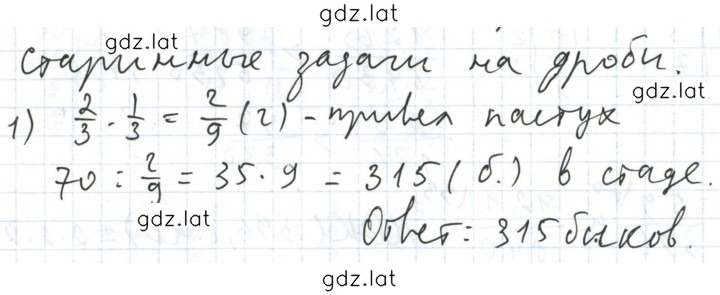 gdz.lat
gdz.lat
Старинные задачи на дроби.
gdz.lat
1) 2/3 · 1/3 = 2/9 (г) - привел пастух
70 : 2/9 = 35 · 9 = 315 (б.) в стаде.
gdz.lat
Ответ: 315 быков.
gdz.lat